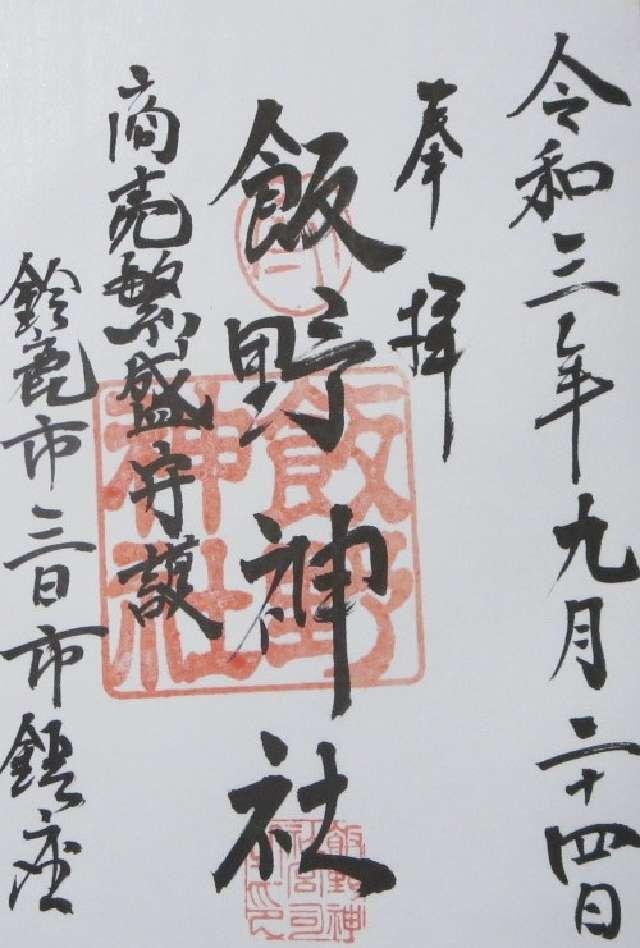 令和三年九月二十四日
奉拝
飯野神社
商売繁盛守護
鈴鹿市三日市鎮座
飯野神社
飯野神社宮司之印